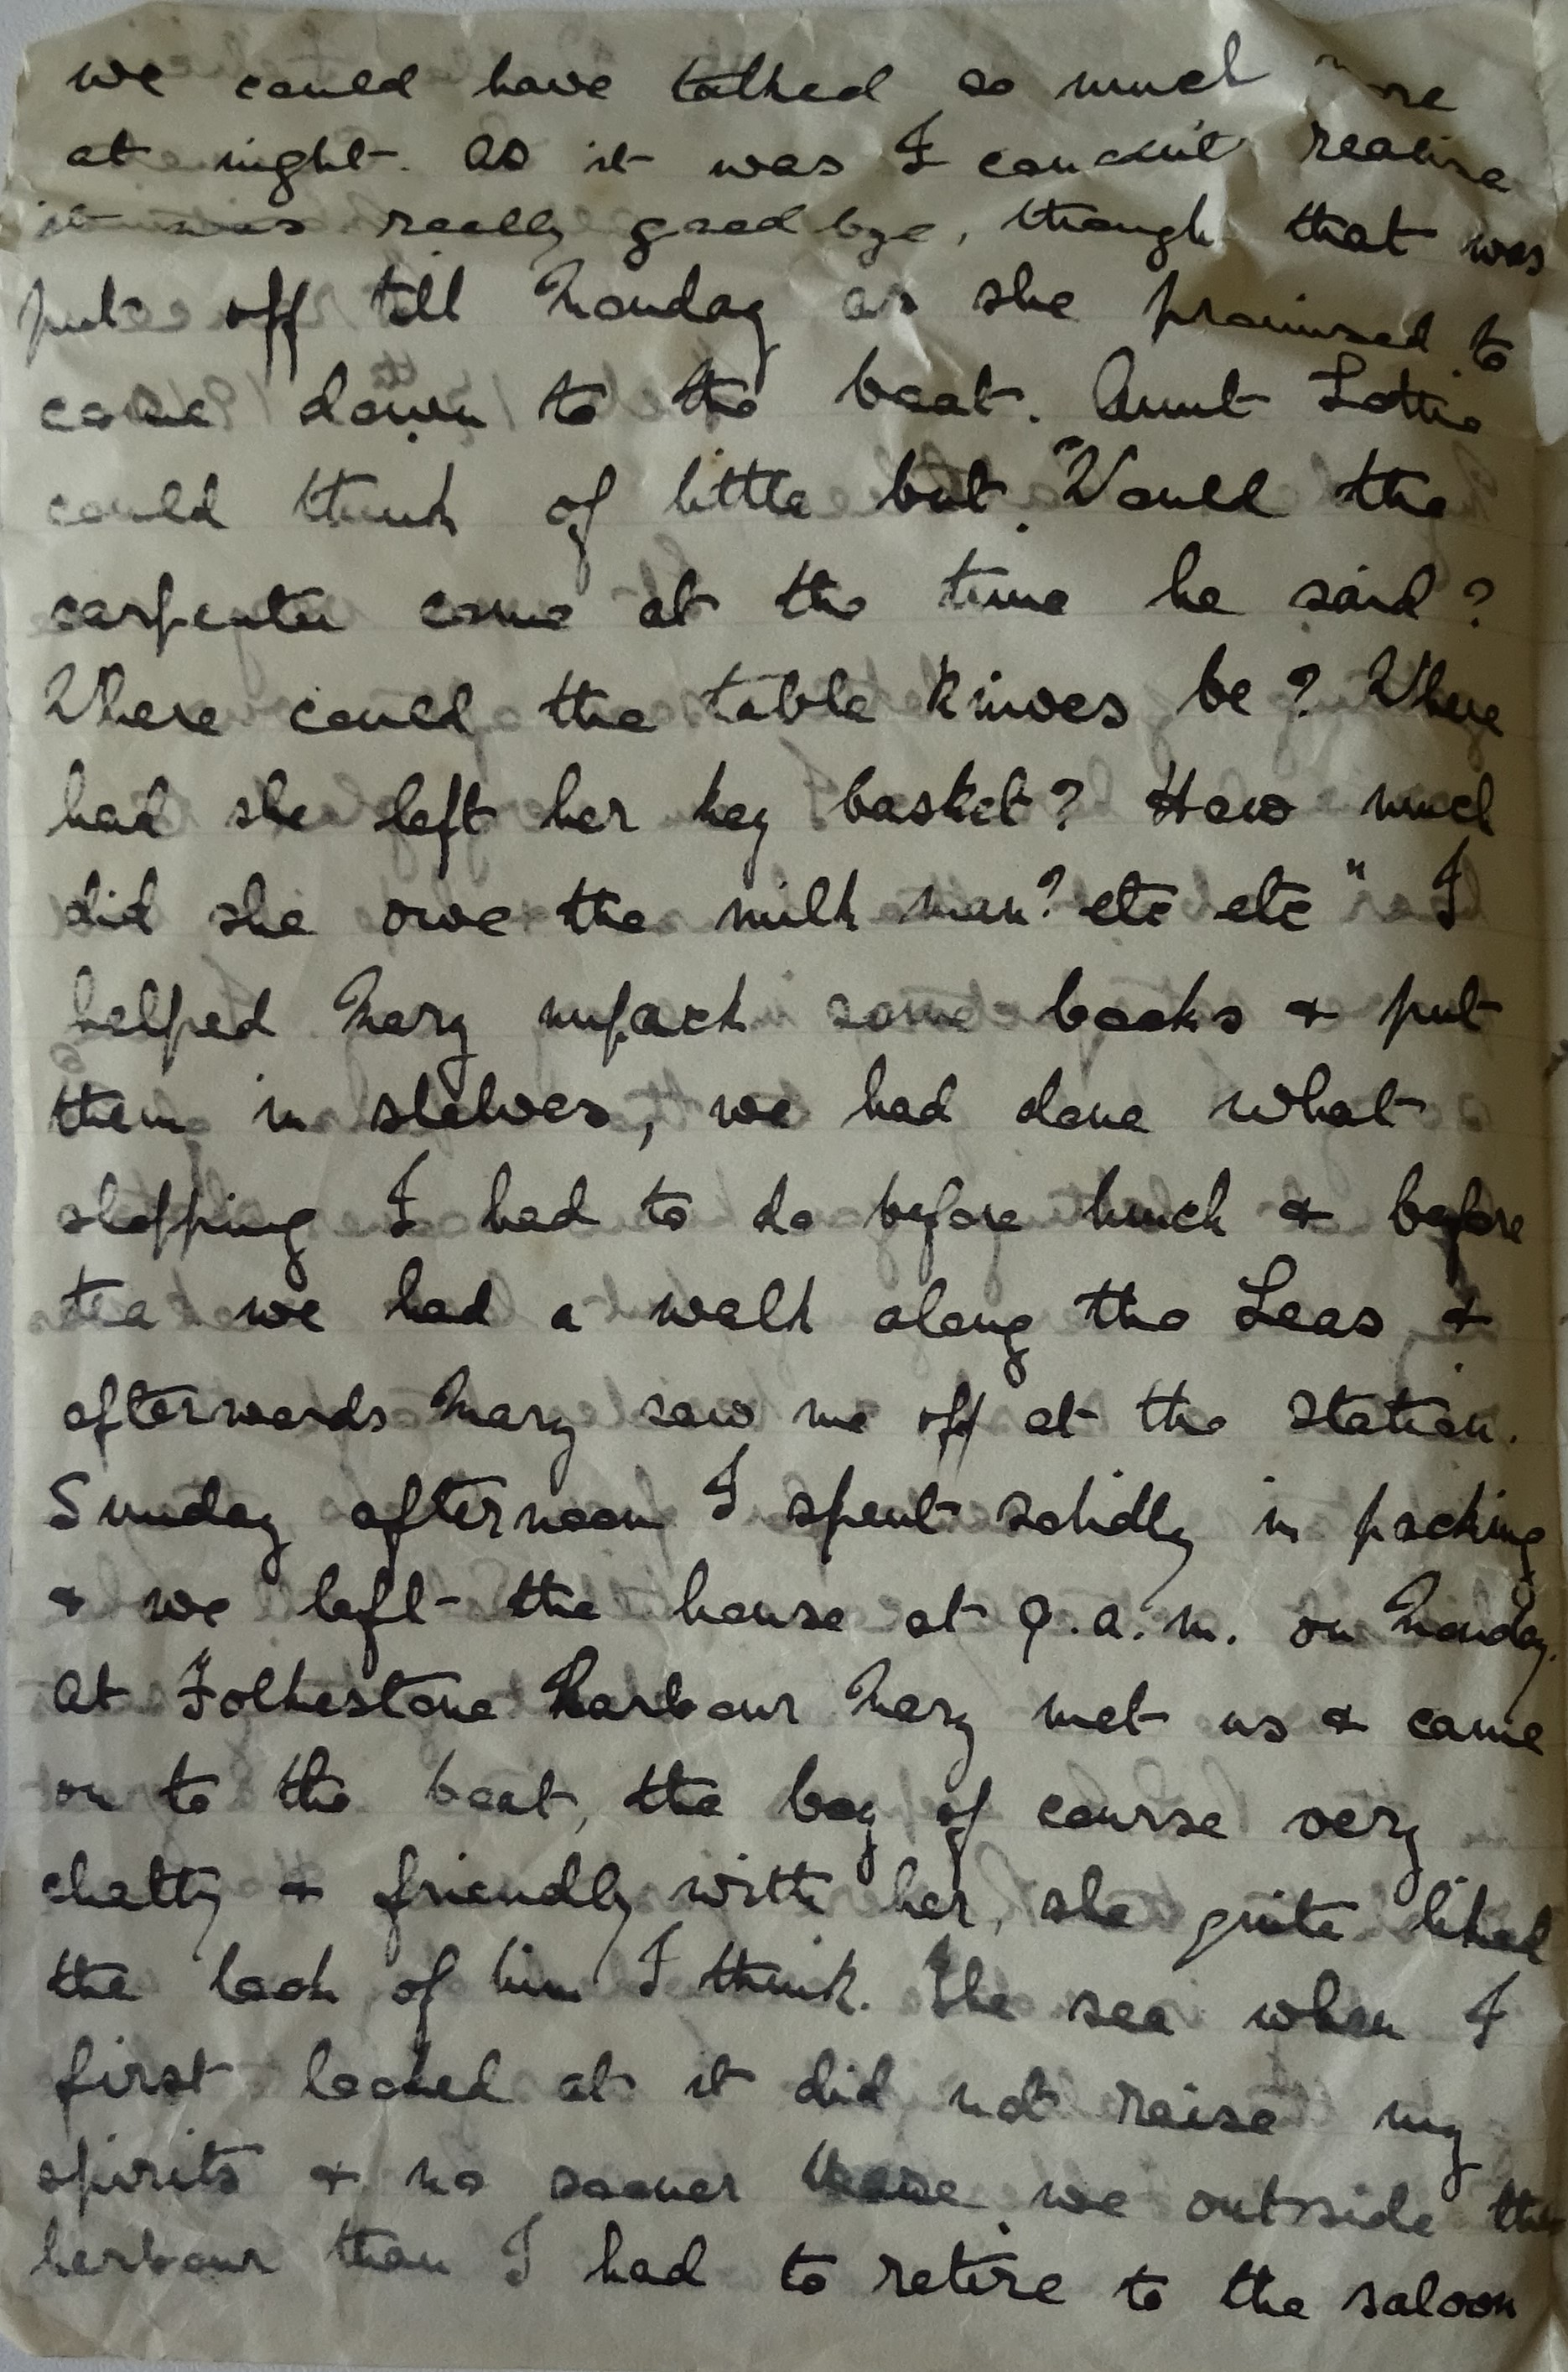 we could have talked so much more
at night. As it was I couldn't realise
it was really good bye, though that was
put off till Monday as she promised to
come down to the boat. Aunt Lottie
could think of little but "Would the
carpenter come at the time he said?
Where could the table knives be? Where
had she left her key basket? How much
did she owe the milk man? etc etc" I
helped Mary unpack some books & put
them in shelves, we had done what
shopping I had to do before lunch & before
tea we had a walk along the Leas &
afterwards Mary saw me off at the station.
Sunday afternoon I spent solidly in packing
& we left the house at 9.a.m. on Monday.
At Folkestone Harbour Mary met us & came
on to the boat, the boy of course very
chatty & friendly with her, she quite liked
the look of him I think. The sea when I
first looked at it did not raise my
spirits & no sooner were we outside the
harbour than I had to retire to the saloon